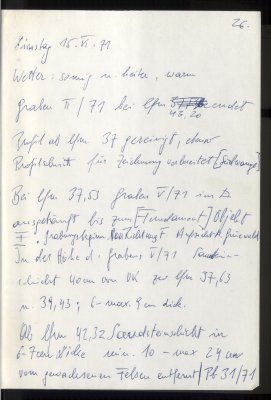 26.
Dienstag 15. VI. 71
Wetter: sonnig u. heiter, warm
Graben II/71 bei lfm endet
43,20
Profil ab lfm 37 gereinigt,
Profilschnitt für Zeichnung vorbereitet
Bei lfm 37,53 Graben V/71 im
bis zum [Fundament] Objekt
I.
In der Höhe d. Grabens V/71
schicht 40 cm von OK zw lfm 37,63
u. 39,43; 6 - max. 9 cm dick.
Ab lfm 42,32 Sandsteinschicht in
6-7 cm Dicke min. 10 - max 24 cm
vom gewachsenen Felsen entfernt / Pb 31/71